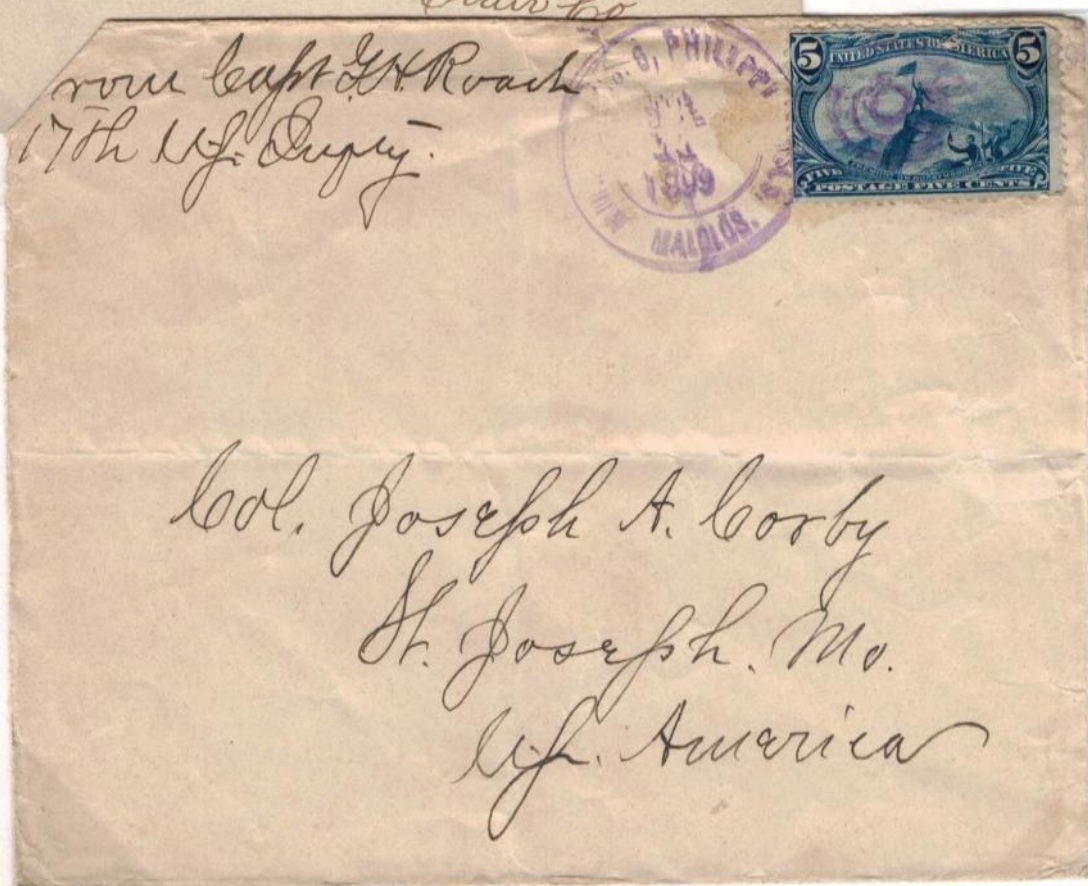 Co
rom Capt G. H. Roach
17th U.S. Infty.
No. 3, PHILIPPI
1899
MALOLOS.
5 UNITED STATES OF AMERICA 5
FIVE FIVE
POSTAGE FIVE CENTS
Col. Joseph A. Corby
St. Joseph. Mo.
U.S. America